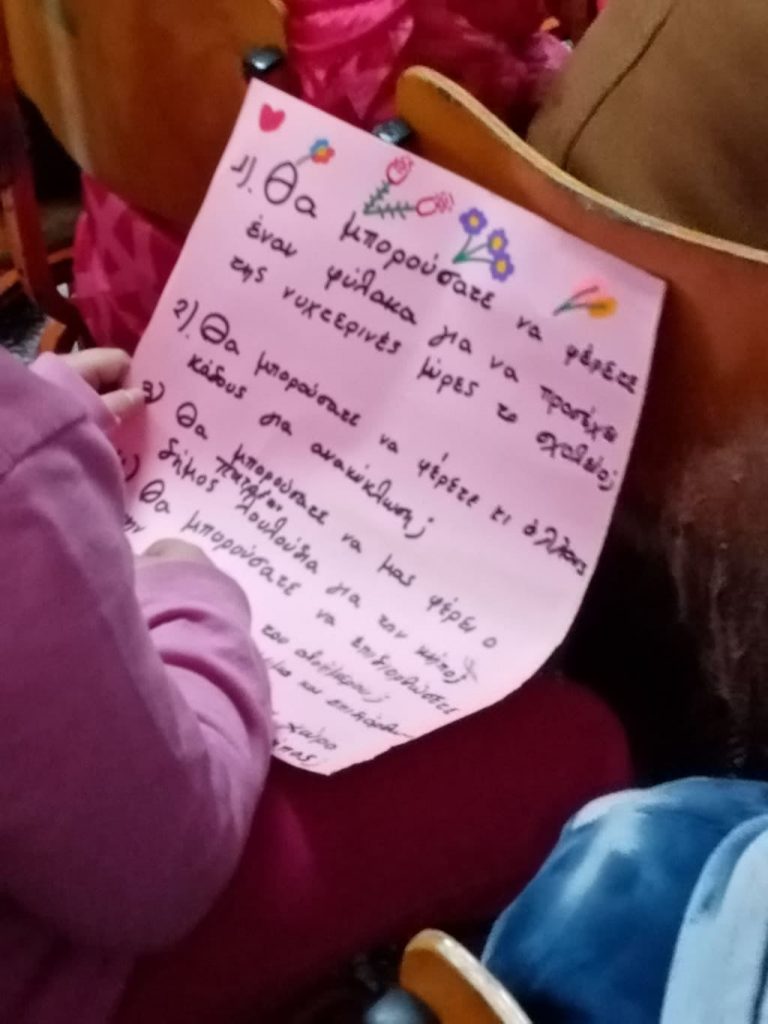 1). Θα μπορούσατε να φέρετε
έναν φύλακα για να προσέχει
της νυχτερινές μώρες το σχολείο;
2) Θα μπορούσατε να φέρετε κι άλλους
κάδους για ανακύκλωση;
3) Θα μπορούσατε να μας φέρει ο
δήμος λουλούδια για τον κήπο;
Θα μπορούσατε να επιδιορθώσετε
του
και
χώρο